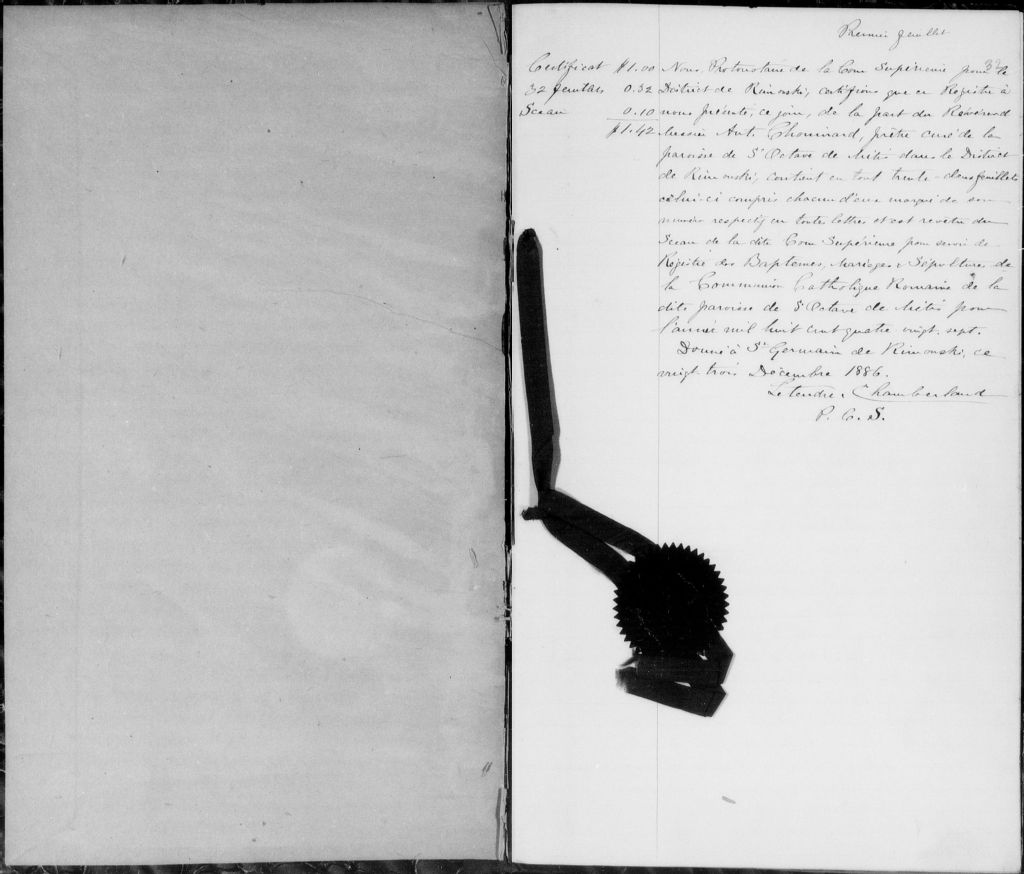 Premier feuillet
32
Certificat $1.00
32 feuillets 0.32
Sceau 0.10
$1.42
Nous, Protonotaire de la Cour Supérieure pour le
District de Rimouski, certifions que ce Registre à
nous présenté, ce jour, de la part du Révérend
Messire Ant. Chouinard, prêtre curé de la
paroisse de St Octave de Métis dans le District
de Rimouski, contient en tout trente-deux feuillets
celui-ci compris chacun d'eux marqué de son
numéro respectif en toutes lettres et est revêtu du
Sceau de la dite Cour Supérieure pour servir de
Registre des Baptemes, Mariages & Sépultures de
la Communion Catholique Romaine de la
dite paroisse de St Octave de Métis pour
l'année mil huit cent quatre vingt, sept.
Donné à St Germain de Rimouski, ce
vingt trois Décembre 1886.
Letendre & Chamberland
P. C. S.